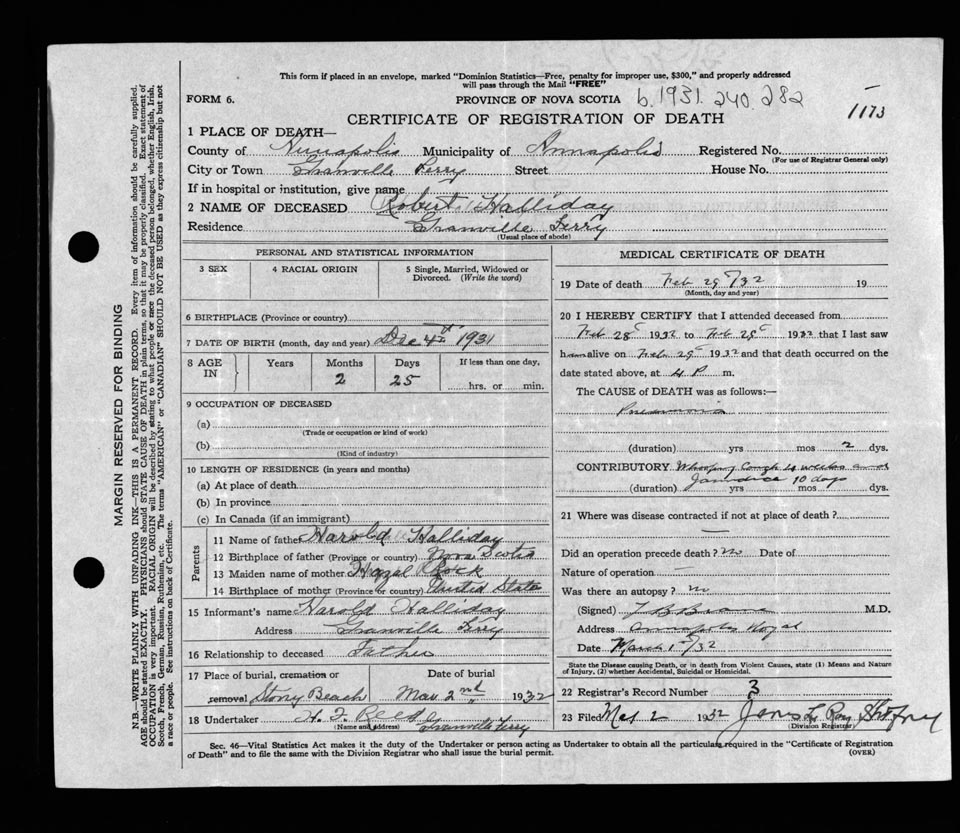 This form if placed in an envelope, marked "Dominion Statistics—Free, penalty for improper use, $300," and properly addressed
will pass through the Mail "FREE"
FORM 6. PROVINCE OF NOVA SCOTIA b. 1931. 240. 282 1173
CERTIFICATE OF REGISTRATION OF DEATH
1 PLACE OF DEATH—
County of Annapolis Municipality of Annapolis Registered No.
(For use of Registrar General only)
City or Town Granville Ferry Street House No.
If in hospital or institution, give name
2 NAME OF DECEASED Robert Halliday
Residence Granville Ferry
(Usual place of abode)
PERSONAL AND STATISTICAL INFORMATION
3 SEX 4 RACIAL ORIGIN 5 Single, Married, Widowed or
Divorced. (Write the word)
6 BIRTHPLACE (Province or country)
7 DATE OF BIRTH (month, day and year) Dec 4th 1931
8 AGE IN Years Months Days If less than one day,
2 25 hrs. or min.
9 OCCUPATION OF DECEASED
(a)
(Trade or occupation or kind of work)
(b)
(Kind of industry)
10 LENGTH OF RESIDENCE (in years and months)
(a) At place of death
(b) In province
(c) In Canada (if an immigrant)
Parents
11 Name of father Harold Halliday
12 Birthplace of father (Province or country) Nova Scotia
13 Maiden name of mother Hazel Rock
14 Birthplace of mother (Province or country) United State
15 Informant's name Harold Halliday
Address Granville Ferry
16 Relationship to deceased Father
17 Place of burial, cremation or Date of burial
removal Stony Beach Mar. 2nd 1932
18 Undertaker Granville Ferry
(Name and address)
MEDICAL CERTIFICATE OF DEATH
19 Date of death Feb 29/32 19
(Month, day and year)
20 I HEREBY CERTIFY that I attended deceased from
Feb 28 1932 to Feb 29 1932 that I last saw
him alive on Feb 29 1932 and that death occurred on the
date stated above, at 4 P m.
The CAUSE OF DEATH was as follows:—
Pneumonia
(duration) yrs mos 2 dys.
CONTRIBUTORY Whooping Cough 4 weeks and
Jaundice 10 days
(duration) yrs mos dys.
21 Where was disease contracted if not at place of death?
—
Did an operation precede death? No Date of
Nature of operation —
Was there an autopsy? No
(Signed) M.D.
Address Annapolis Royal
Date March 1/32
State the Disease causing Death, or in death from Violent Causes, state (1) Means and Nature
of Injury, (2) whether Accidental, Suicidal or Homicidal.
22 Registrar's Record Number 3
23 Filed Mar 2 1932
(Division Registrar)
Sec. 46—Vital Statistics Act makes it the duty of the Undertaker or person acting as Undertaker to obtain all the particulars required in the "Certificate of Registration
of Death" and to file the same with the Division Registrar who shall issue the burial permit. (OVER)
MARGIN RESERVED FOR BINDING
N.B.—WRITE PLAINLY WITH UNFADING INK—THIS IS A PERMANENT RECORD. Every item of information should be carefully supplied.
AGE should be stated EXACTLY. PHYSICIANS should STATE CAUSE OF DEATH in plain terms, so that it may be properly classified. Exact statement of
OCCUPATION is very important. RACIAL ORIGIN will be described by stating to what people or race the deceased person belonged, whether English, Irish,
Scotch, French, German, Russian, Ruthenian, etc. The terms "AMERICAN" or "CANADIAN" SHOULD NOT BE USED as they express citizenship but not
a race or people. See instructions on back of Certificate.